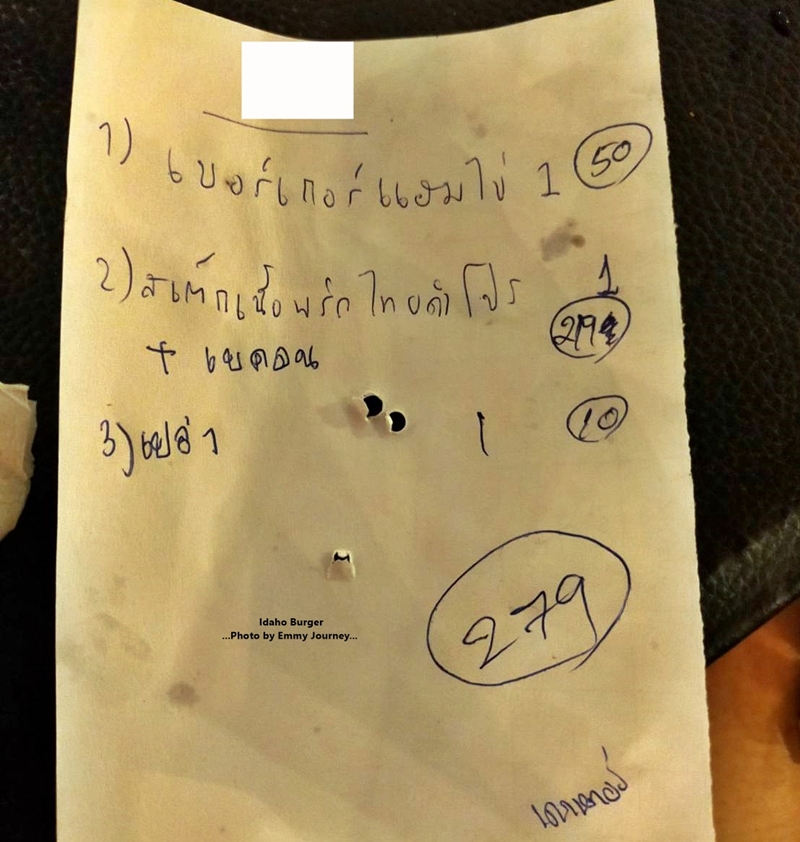 1) เบอร์เกอร์แฮมไข่ 1 50
2) สเต็กเนื้อพริกไทยดำโปร 1
+ เบคอน 219
3) เปล่า 1 10
279
Idaho Burger
...Photo by Emmy Journey...